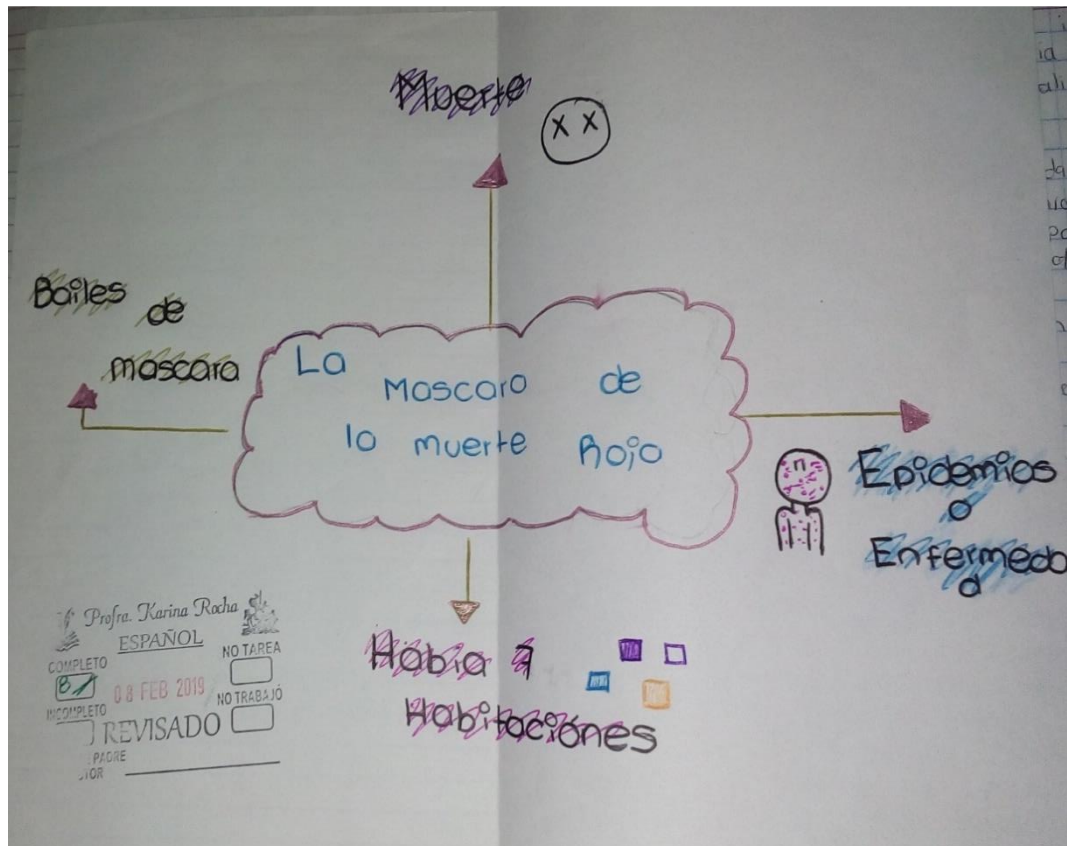 Muerte
x x
Bailes de
mascara
La
Mascara de
la muerte Roja
Epidemias
o
Enfermeda
d
Había 7
Habitaciónes
Profra. Karina Rocha
ESPAÑOL
COMPLETO
NO TAREA
B
08 FEB 2019
INCOMPLETO
NO TRABAJÓ
REVISADO
PADRE